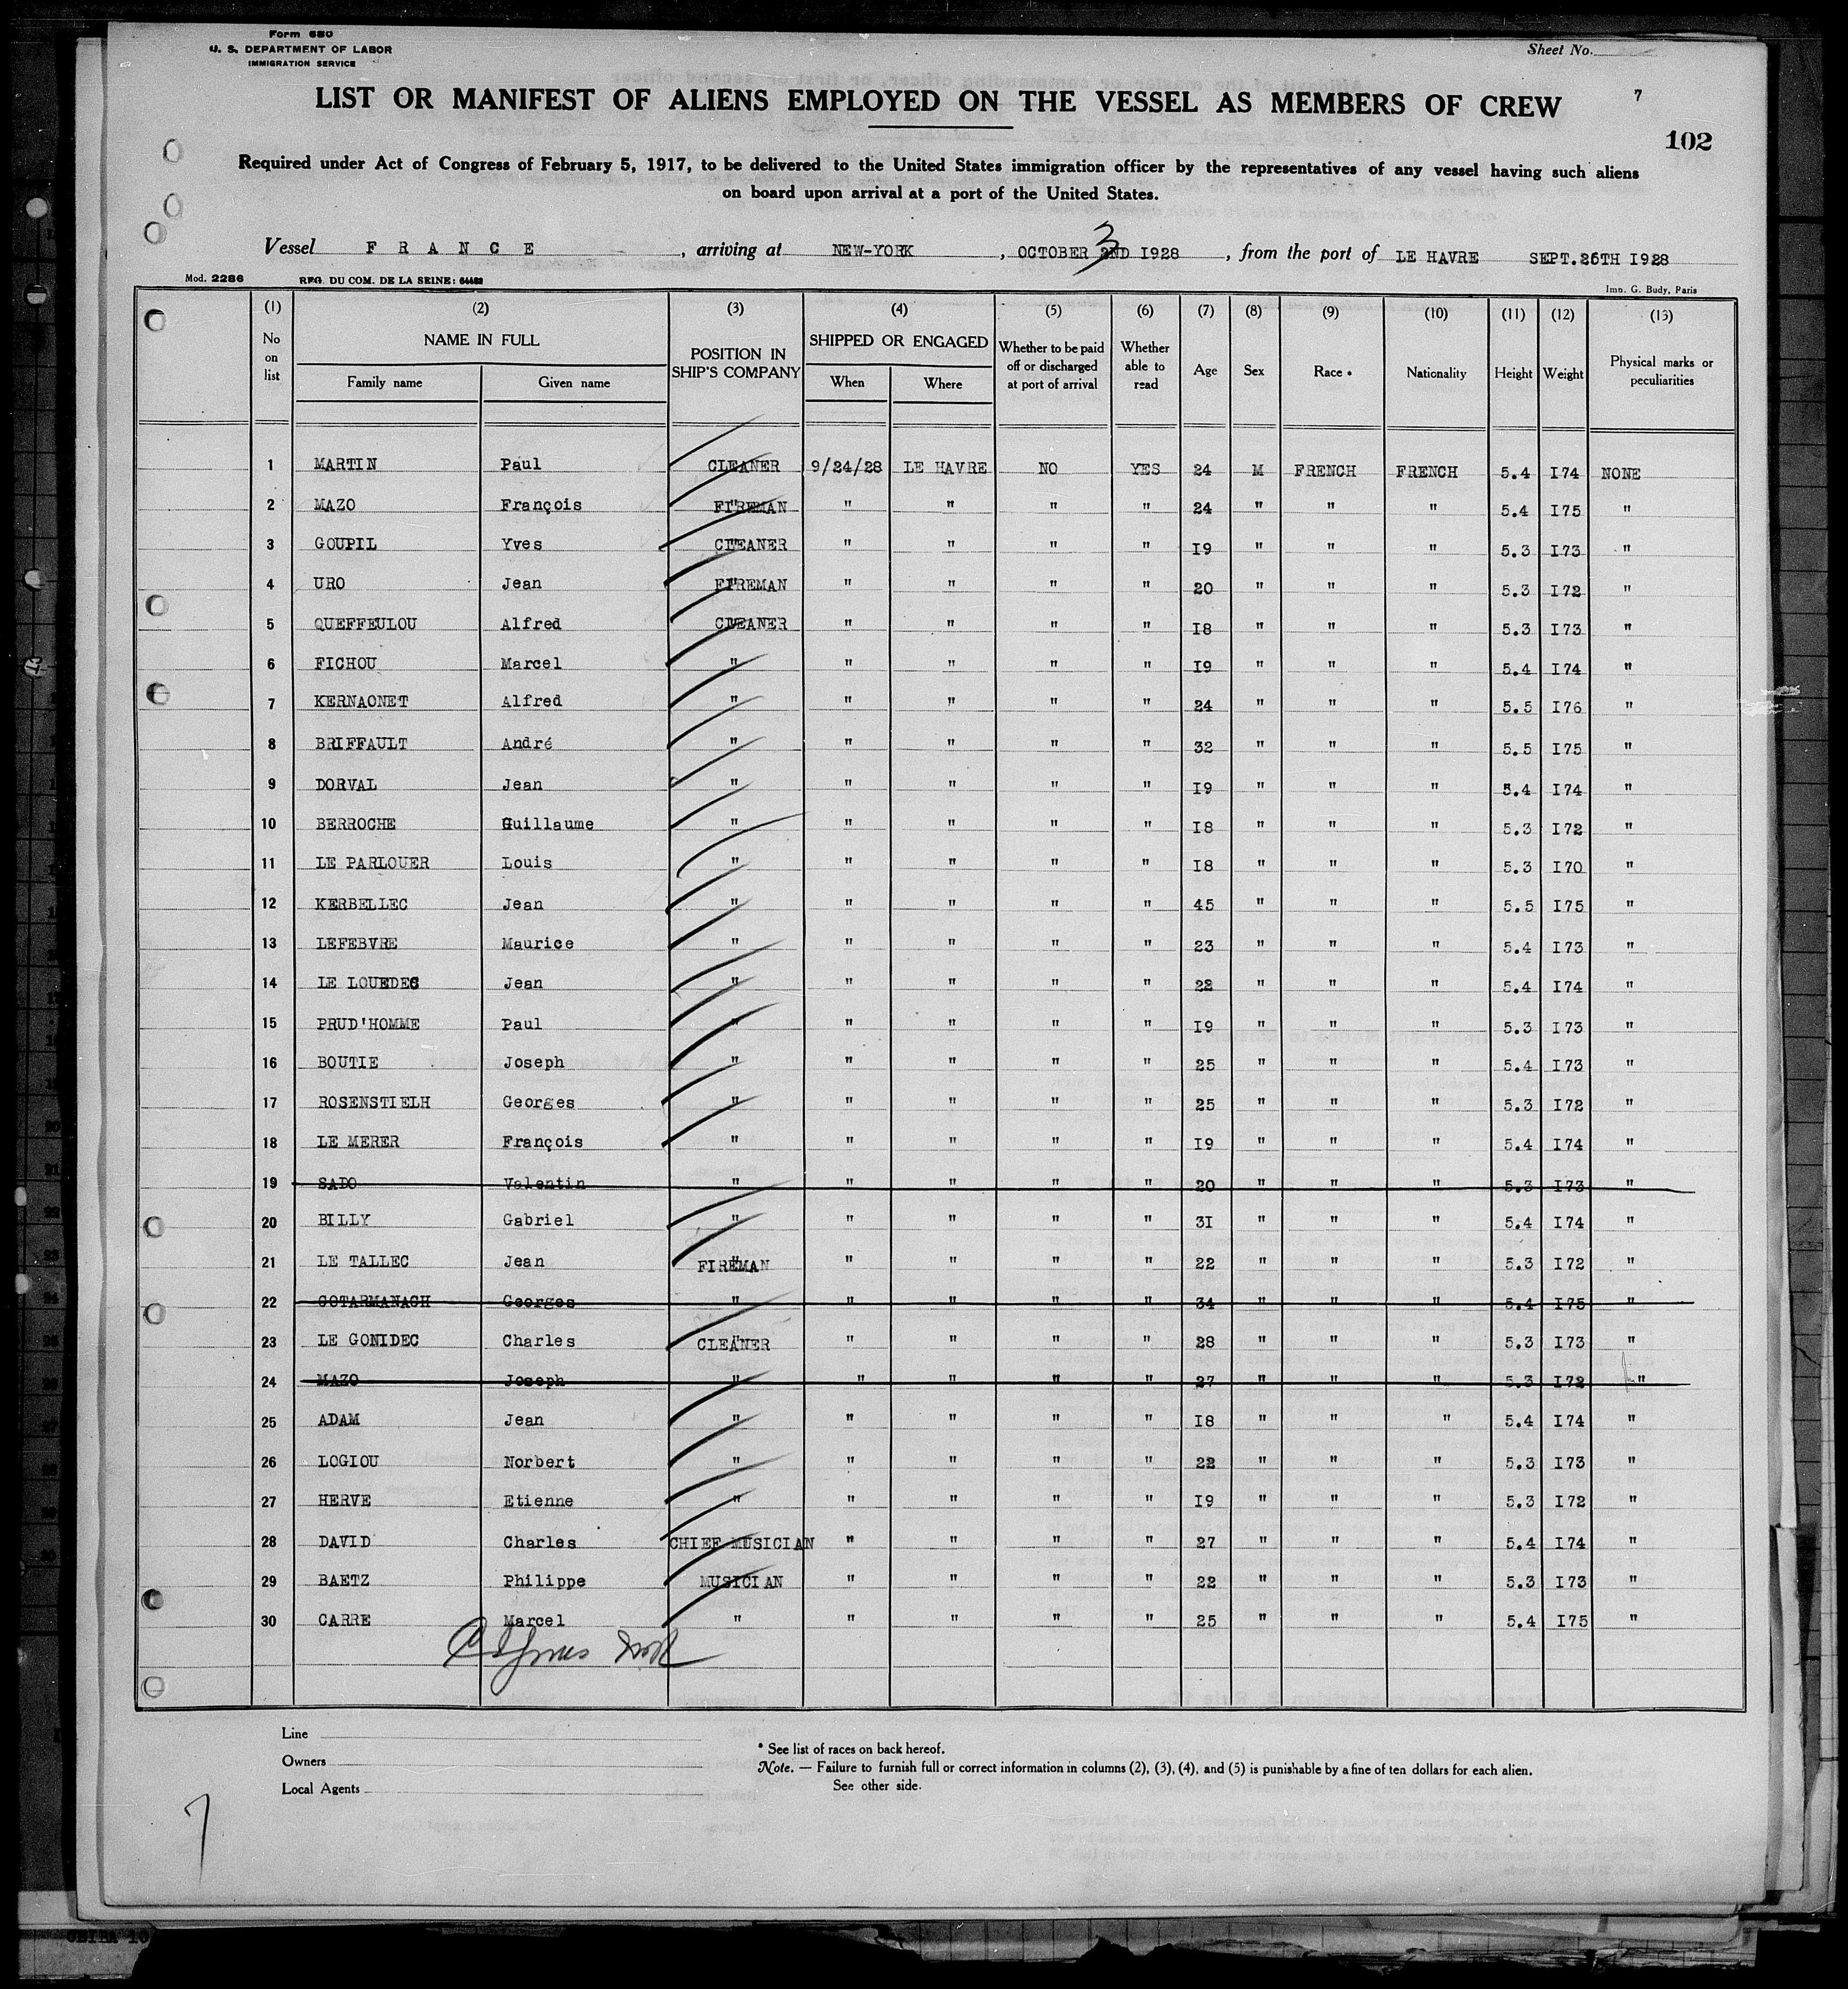 Form 680
U. S. DEPARTMENT OF LABOR
IMMIGRATION SERVICE
Sheet No.
LIST OR MANIFEST OF ALIENS EMPLOYED ON THE VESSEL AS MEMBERS OF CREW
7
102
Required under Act of Congress of February 5, 1917, to be delivered to the United States immigration officer by the representatives of any vessel having such aliens
on board upon arrival at a port of the United States.
Vessel F R A N C E , arriving at NEW-YORK , OCTOBER 2ND 3 1928 , from the port of LE HAVRE SEPT.26TH 1928
Mod. 2286 REG. DU COM. DE LA SEINE: 64462 Imp. G. Budy, Paris
(1) (2) (3) (4) (5) (6) (7) (8) (9) (10) (11) (12) (13)
No on list NAME IN FULL POSITION IN SHIP'S COMPANY SHIPPED OR ENGAGED Whether to be paid off or discharged at port of arrival Whether able to read Age Sex Race * Nationality Height Weight Physical marks or peculiarities
Family name Given name When Where
1 MARTIN Paul CLEANER 9/24/28 LE HAVRE NO YES 24 M FRENCH FRENCH 5.4 I74 NONE
2 MAZO François FIREMAN " " " " 24 " " " 5.4 I75 "
3 GOUPIL Yves CLEANER " " " " I9 " " " 5.3 I73 "
4 URO Jean FIREMAN " " " " 20 " " " 5.3 I72 "
5 QUEFFEULOU Alfred CLEANER " " " " I8 " " " 5.3 I73 "
6 FICHOU Marcel " " " " " I9 " " " 5.4 I74 "
7 KERNAONET Alfred " " " " " 24 " " " 5.5 I76 "
8 BRIFFAULT André " " " " " 32 " " " 5.5 I75 "
9 DORVAL Jean " " " " " I9 " " " 5.4 I74 "
10 BERROCHE Guillaume " " " " " I8 " " " 5.3 I72 "
11 LE PARLOUER Louis " " " " " I8 " " " 5.3 I70 "
12 KERBELLEC Jean " " " " " 45 " " " 5.5 I75 "
13 LEFEBVRE Maurice " " " " " 23 " " " 5.4 I73 "
14 LE LOUEDEC Jean " " " " " 22 " " " 5.4 I74 "
15 PRUD'HOMME Paul " " " " " I9 " " " 5.3 I73 "
16 BOUTIE Joseph " " " " " 25 " " " 5.4 I73 "
17 ROSENSTIELH Georges " " " " " 25 " " " 5.3 I72 "
18 LE MERER François " " " " " I9 " " " 5.4 I74 "
19 SADO Valentin " " " " " 20 " " " 5.3 I73 "
20 BILLY Gabriel " " " " " 3I " " " 5.4 I74 "
21 LE TALLEC Jean FIREMAN " " " " 22 " " " 5.3 I72 "
22 COTARMANACH Georges " " " " " 34 " " " 5.4 I75 "
23 LE GONIDEC Charles CLEANER " " " " 28 " " " 5.3 I73 "
24 MAZO Joseph " " " " " 27 " " " 5.3 I72 "
25 ADAM Jean " " " " " I8 " " " 5.4 I74 "
26 LOGIOU Norbert " " " " " 22 " " " 5.3 I73 "
27 HERVE Etienne " " " " " I9 " " " 5.3 I72 "
28 DAVID Charles CHIEF MUSICIAN " " " " 27 " " " 5.4 I74 "
29 BAETZ Philippe MUSICIAN " " " " 22 " " " 5.3 I73 "
30 CARRE Marcel " " " " " 25 " " " 5.4 I75 "
Line
Owners
Local Agents
* See list of races on back hereof.
Note. — Failure to furnish full or correct information in columns (2), (3), (4), and (5) is punishable by a fine of ten dollars for each alien.
See other side.
7